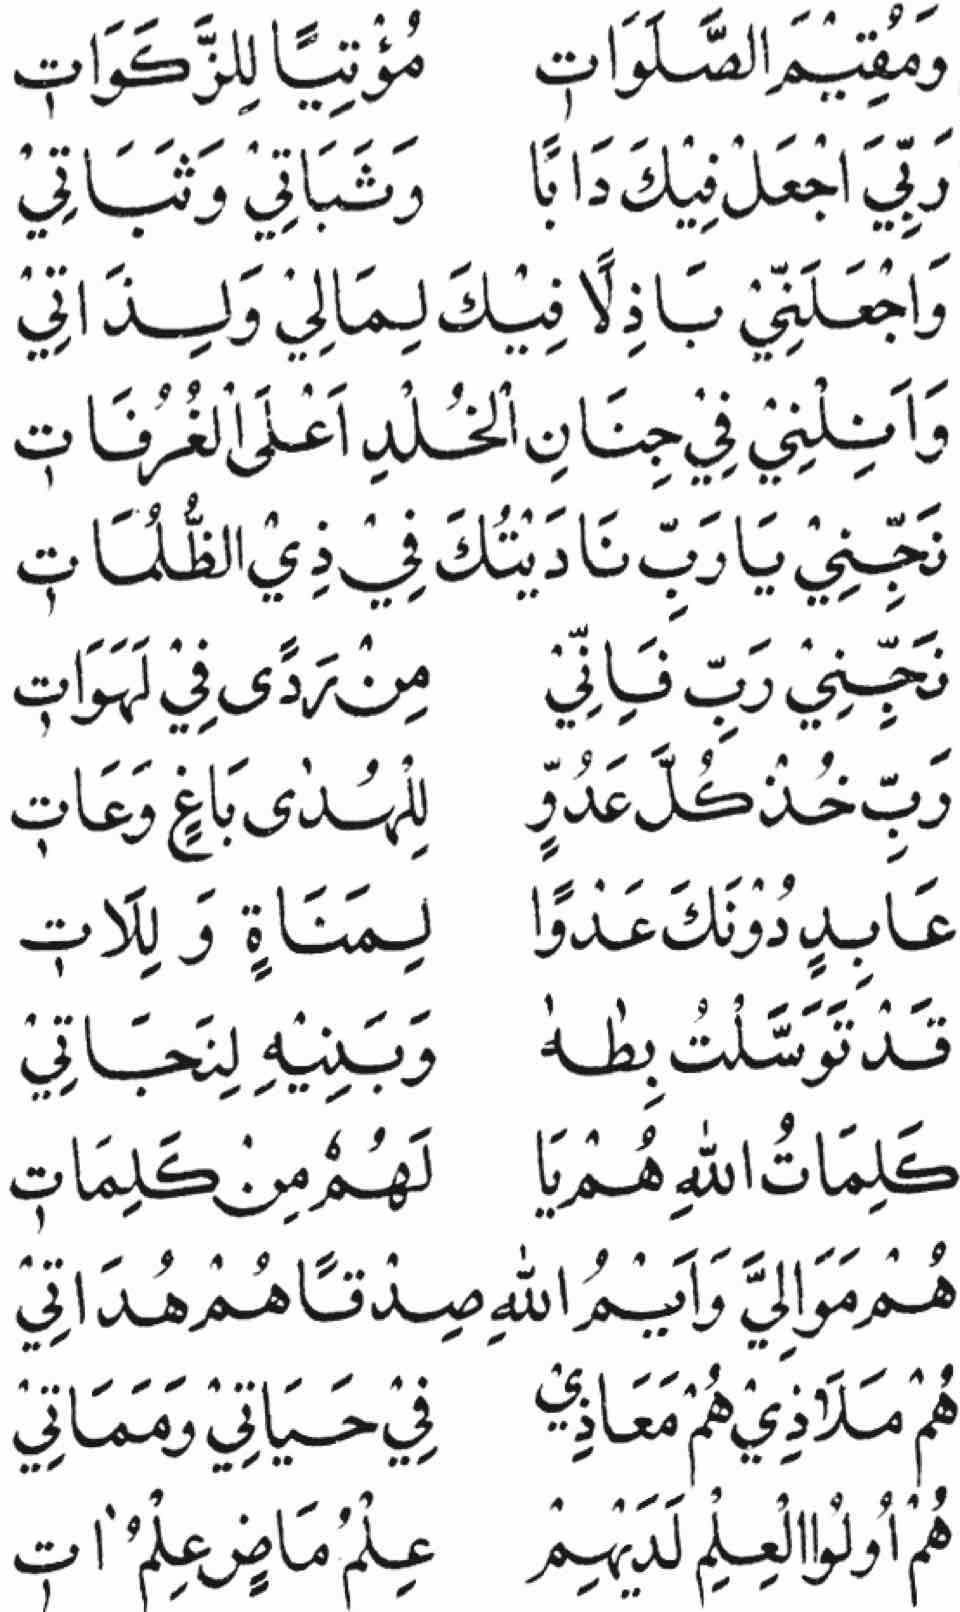 وَمُقِيْمَ الصَّلَوَاتِ مُؤْتِيًا لِلزَّكَوَاتِ
رَبِّيَ اجْعَلْ فِيْكَ دَابًا وَثَبَاتِيْ وَثَبَاتِيْ
وَاجْعَلَنِّيْ بَاذِلًا فِيْكَ لِمَالِيْ وَلِذَاتِيْ
وَاَنِلْنِيْ فِيْ جِنَانِ الْخُلْدِ اَعْلَى الْغُرُفَاتِ
نَجِّنِيْ يَا رَبِّ نَادَيْتُكَ فِيْ ذِيْ الظُّلُمَاتِ
نَجِّنِيْ رَبِّ فَاِنِّيْ مِنْ رَدًى فِيْ لَهَوَاتِ
رَبِّ خُذْ كُلَّ عَدُوٍّ لِلْهُدٰى بَاغٍ وَعَاتِ
عَابِدٍ دُوْنَكَ عَدْوًا لِمَنَاةٍ وَ لِلَاتِ
قَدْ تَوَسَّلْتُ بِطٰهٰ وَبَنِيْهِ لِنَجَاتِيْ
كَلِمَاتُ اللهِ هُمْ يَا لَهُمُ مِنْ كَلِمَاتِ
هُمْ مَوَالِيَّ وَاَيْمُ اللهِ صِدْقًا هُمْ هُدَاتِيْ
هُمْ مَلَاذِيْ هُمْ مَعَاذِيْ فِيْ حَيَاتِيْ وَمَمَاتِيْ
هُمْ اُولُوا الْعِلْمِ لَدَيْهِمْ عِلْمُ مَاضٍ عِلْمُ اٰتِ